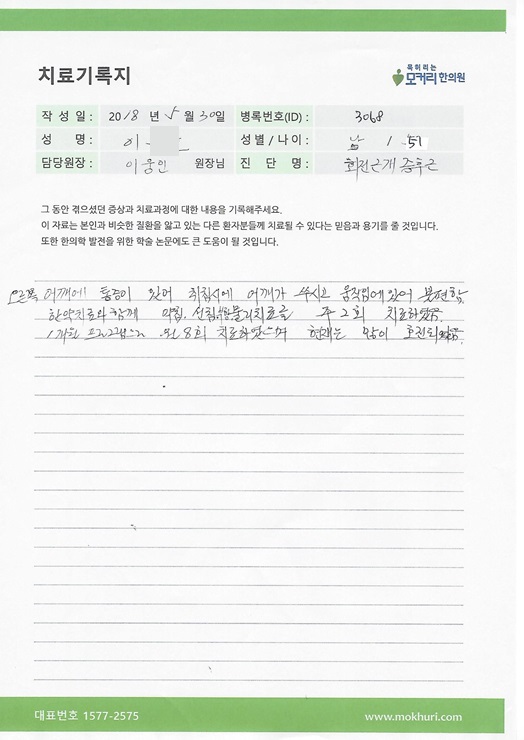 치료기록지
특허리는
모커리한의원
작 성 일 : 2018 년 5 월 30일 병록번호(ID) : 3068
성 명 : 이 성별 / 나이 : 남 / 57
담당원장 : 이웅인 원장님 진 단 명 : 회전근개 증후군
그 동안 겪으셨던 증상과 치료과정에 대한 내용을 기록해주세요.
이 자료는 본인과 비슷한 질환을 앓고 있는 다른 환자분들께 치료될 수 있다는 믿음과 용기를 줄 것입니다.
또한 한의학 발전을 위한 학술 논문에도 큰 도움이 될 것입니다.
오른쪽 어깨에 통증이 있어 취침시에 어깨가 쑤시고 움직임에 있어 불편함.
한약치료와 함께 약침, 선침, 물리치료를 주 2회 치료하였음.
1개월 프로그램으로 월 8회 치료하였으며 현재는 많이 호전되었음.
대표번호 1577-2575
www.mokhuri.com